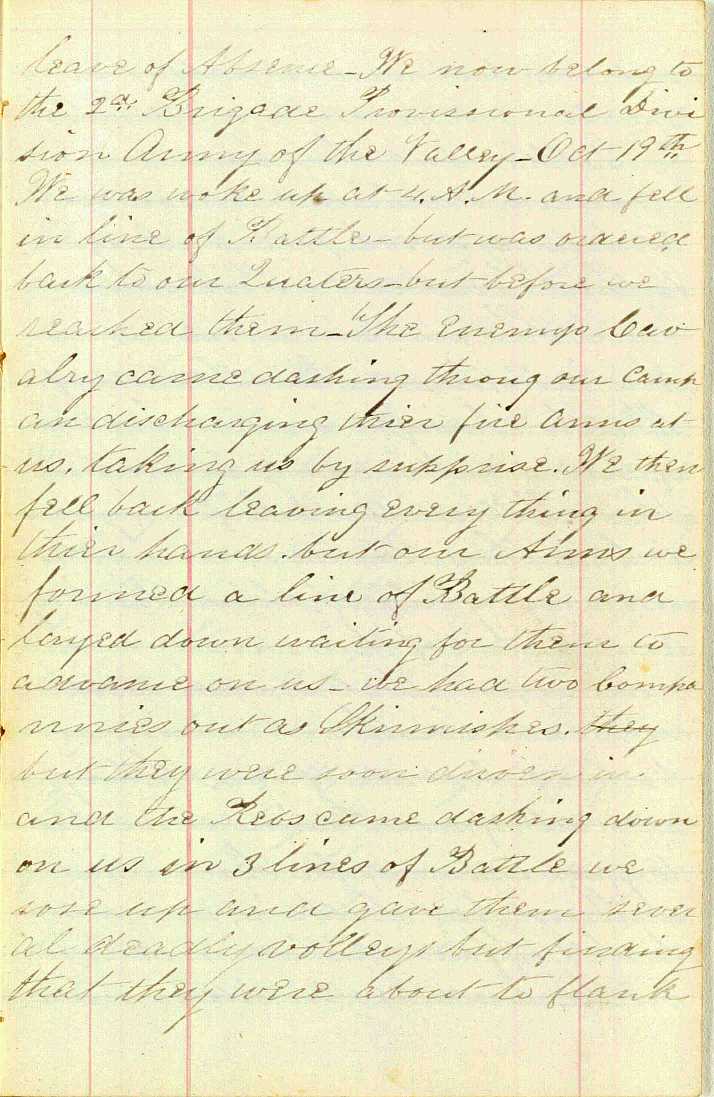 leave of Absence - We now belong to
the 2nd Brigade Provissional Divi
sion Army of the Valley - Oct 19th
We was woke up at 4. A. M. and fell
in line of Battle - but was ordered
back to our Quaters - but before we
reached them - The Enemys Cav
alry came dashing throug our Camp
an discharging thier fire arms at
us. taking us by supprise. We then
fell back leaving every thing in
thier hands. but our Arms we
formed a line of Battle and
layed down waiting for them to
advance on us - we had two Compa
nnies out as Skirmishes. they
but they were soon driven in.
and the Rebs came dashing down
on us in 3 lines of Battle we
rose up and gave them sever
al deadly volleys but finding
that they were about to flank